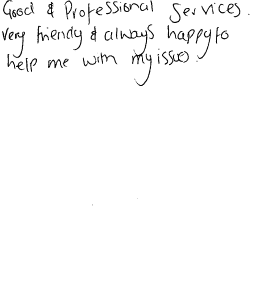 Good & Professional Services.
very friendly & always happy to
help me with my issues.